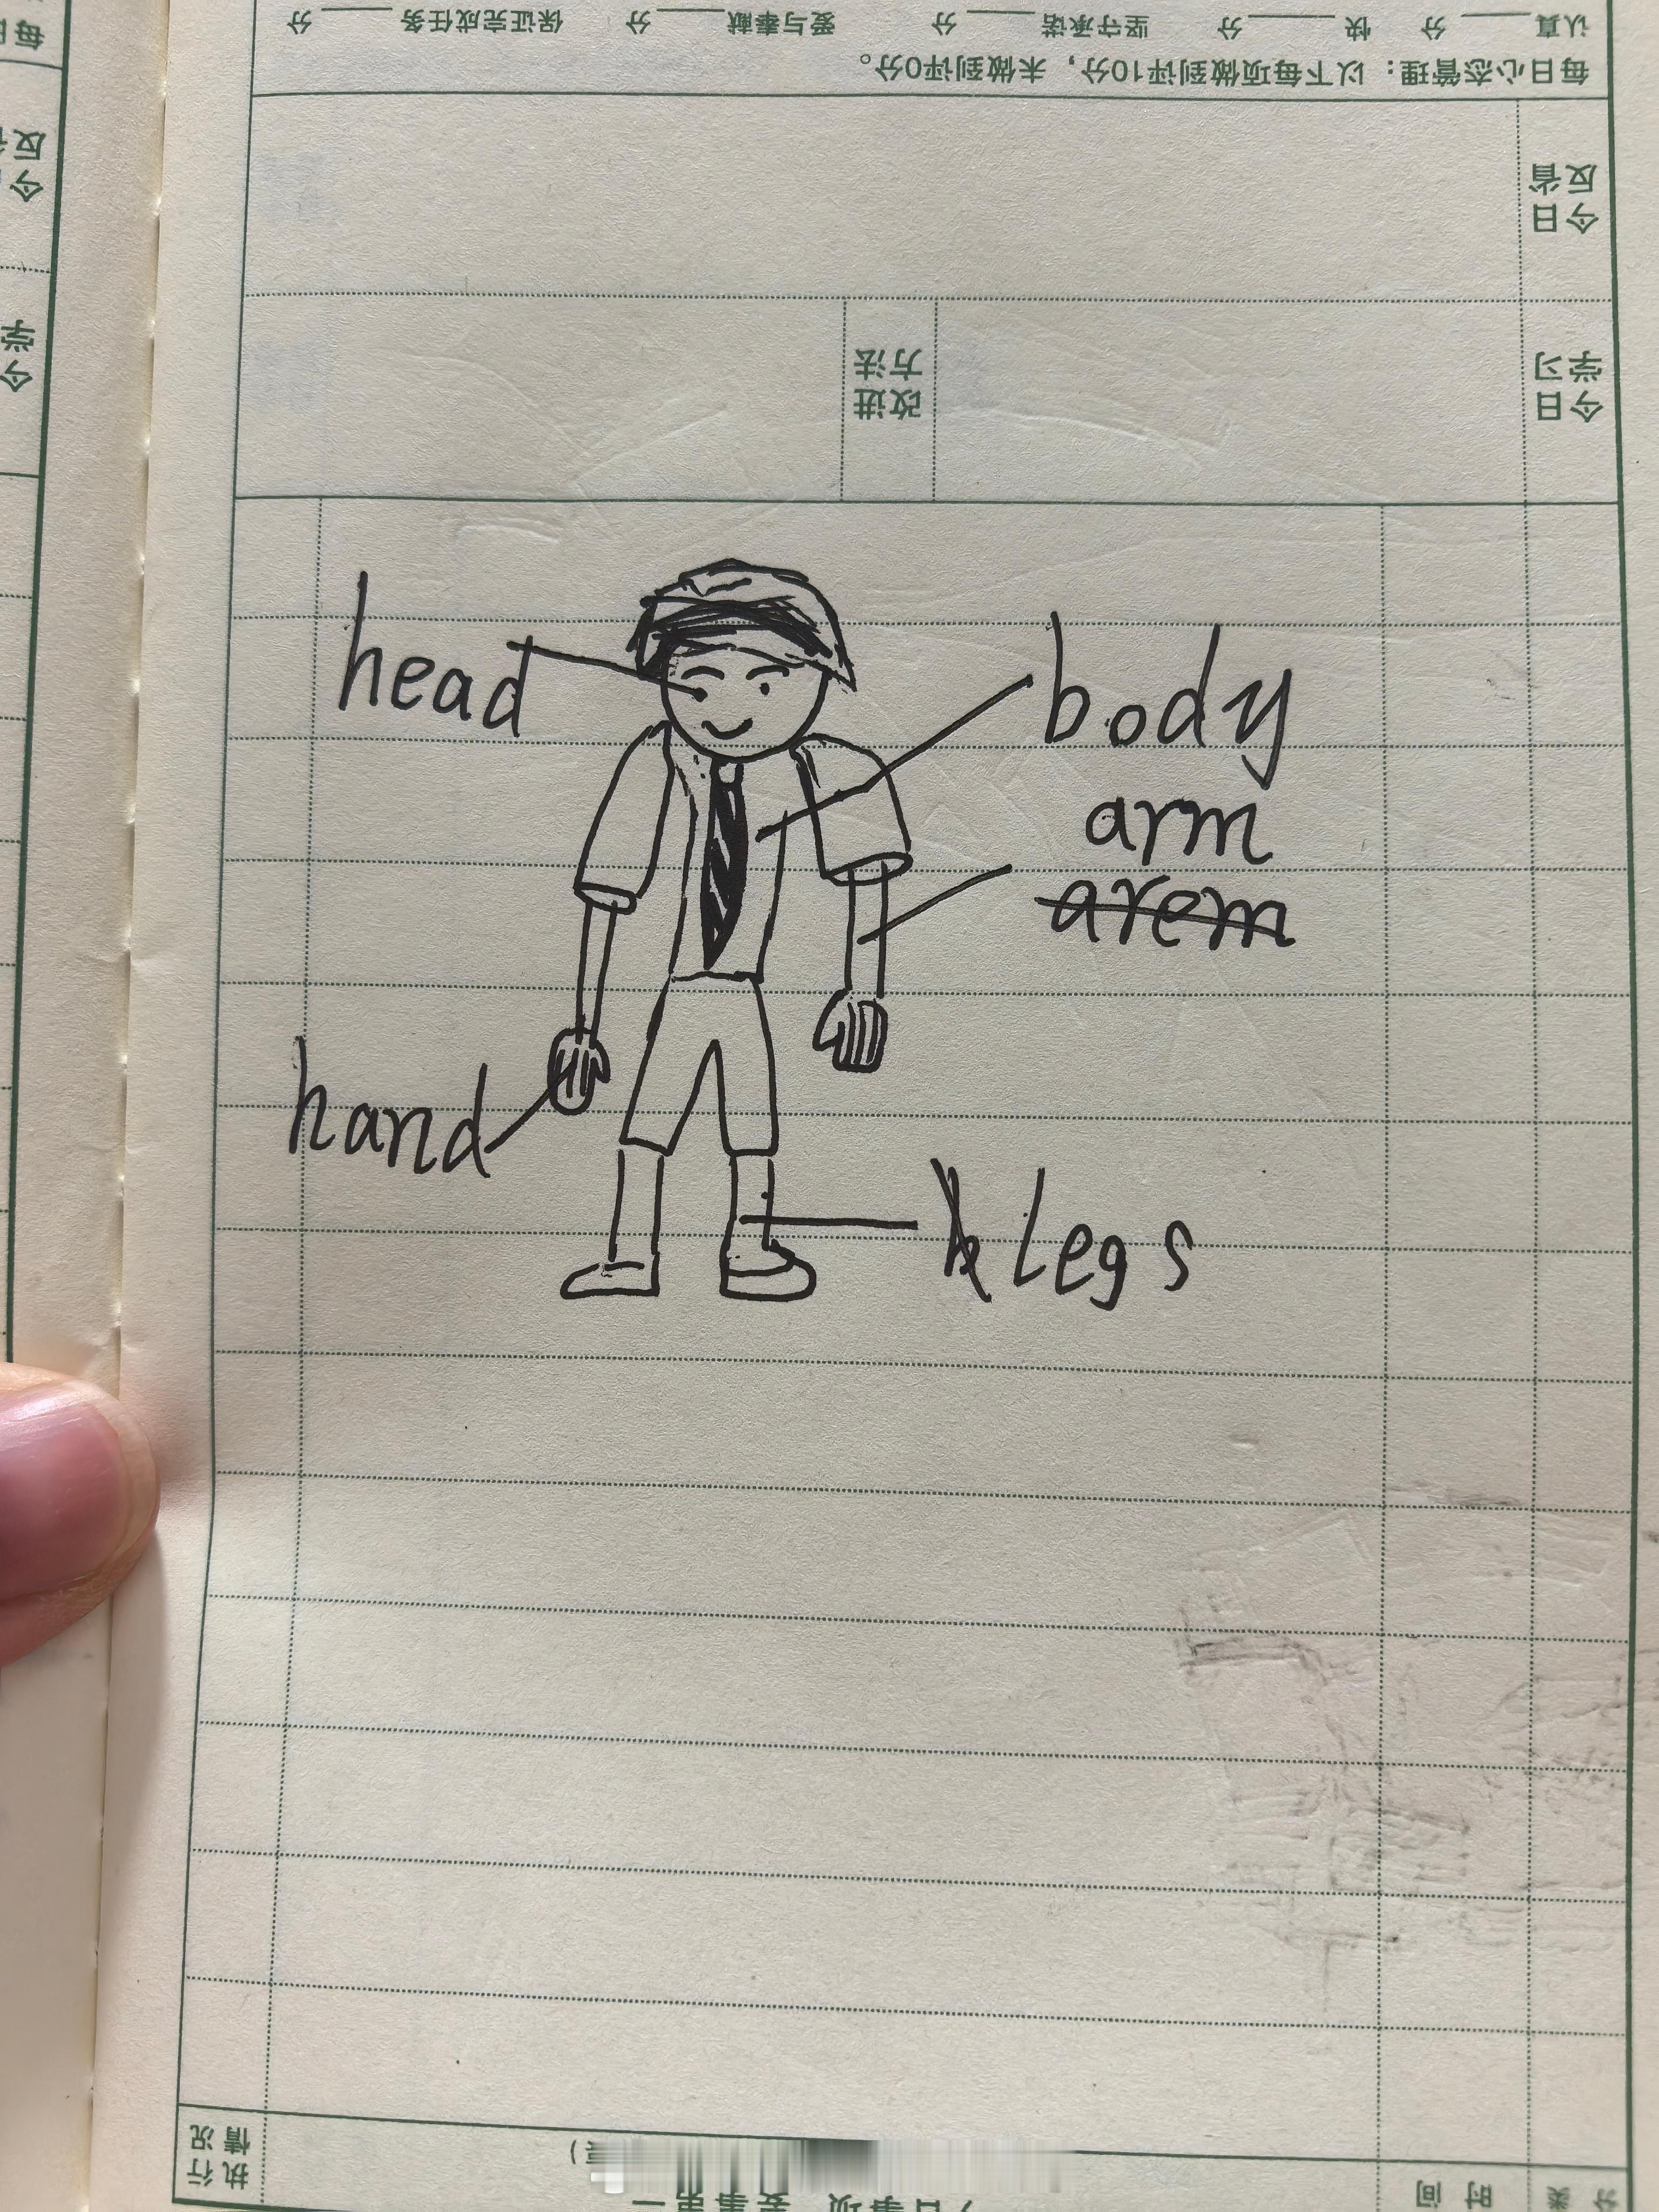 认真____分 快____分 坚守承诺____分 爱与奉献____分 保证完成任务____分
每日心态管理：以下每项做到评10分，未做到评0分。
今日反省
今日学习
改进方法
head
body
arm
arem
hand
legs
执行情况
时间
分类